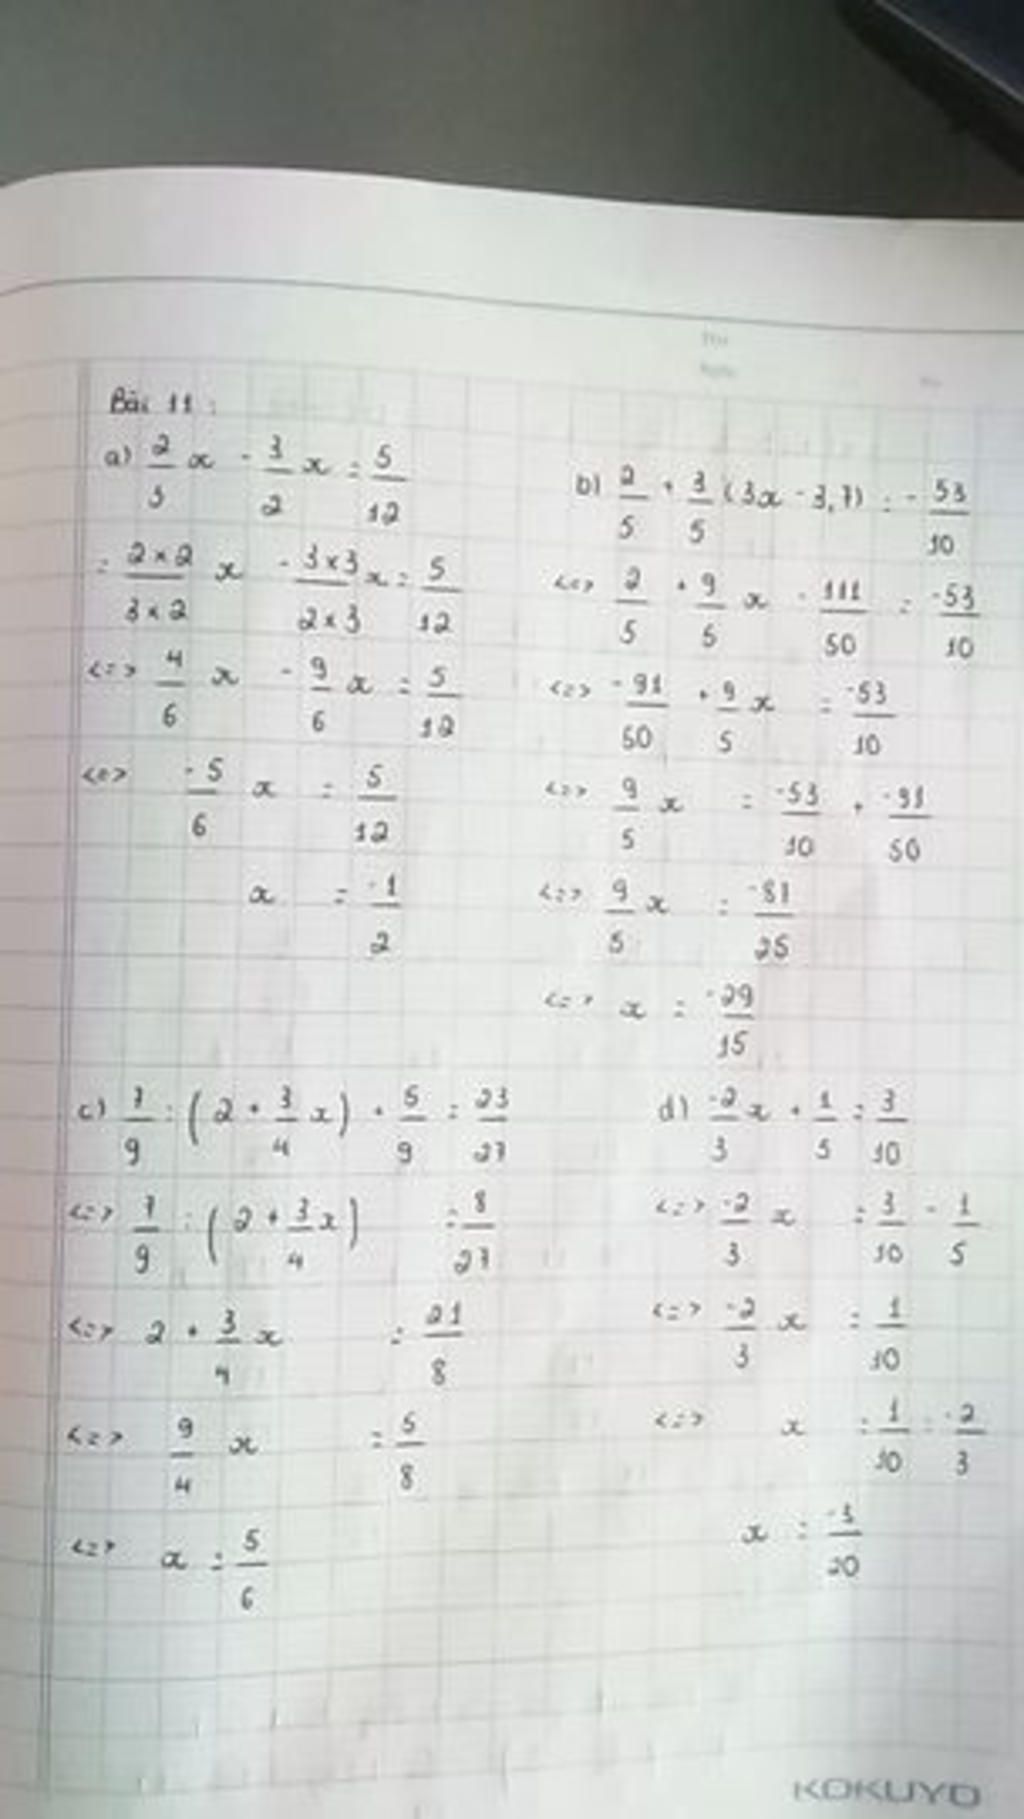 Bài 11:
a) 2/3 x - 3/2 x = 5/12
= 2×2/3×2 x - 3×3/2×3 x = 5/12
<=> 4/6 x - 9/6 x = 5/12
<=> -5/6 x = 5/12
x = -1/2
b) 2/5 + 3/5 (3x - 3,7) = -53/10
<=> 2/5 + 9/5 x - 111/50 = -53/10
<=> -91/50 + 9/5 x = -53/10
<=> 9/5 x = -53/10 + -91/50
<=> 9/5 x = -81/25
<=> x = -29/15
c) 7/9 : (2 + 3/4 x) + 5/9 = 23/27
<=> 7/9 : (2 + 3/4 x) = 8/27
<=> 2 + 3/4 x = 21/8
<=> 9/4 x = 5/8
<=> x = 5/6
d) -2/3 x + 1/5 = 3/10
<=> -2/3 x = 3/10 - 1/5
<=> -2/3 x = 1/10
<=> x = 1/10 : -2/3
x = -3/20
KOKUYO